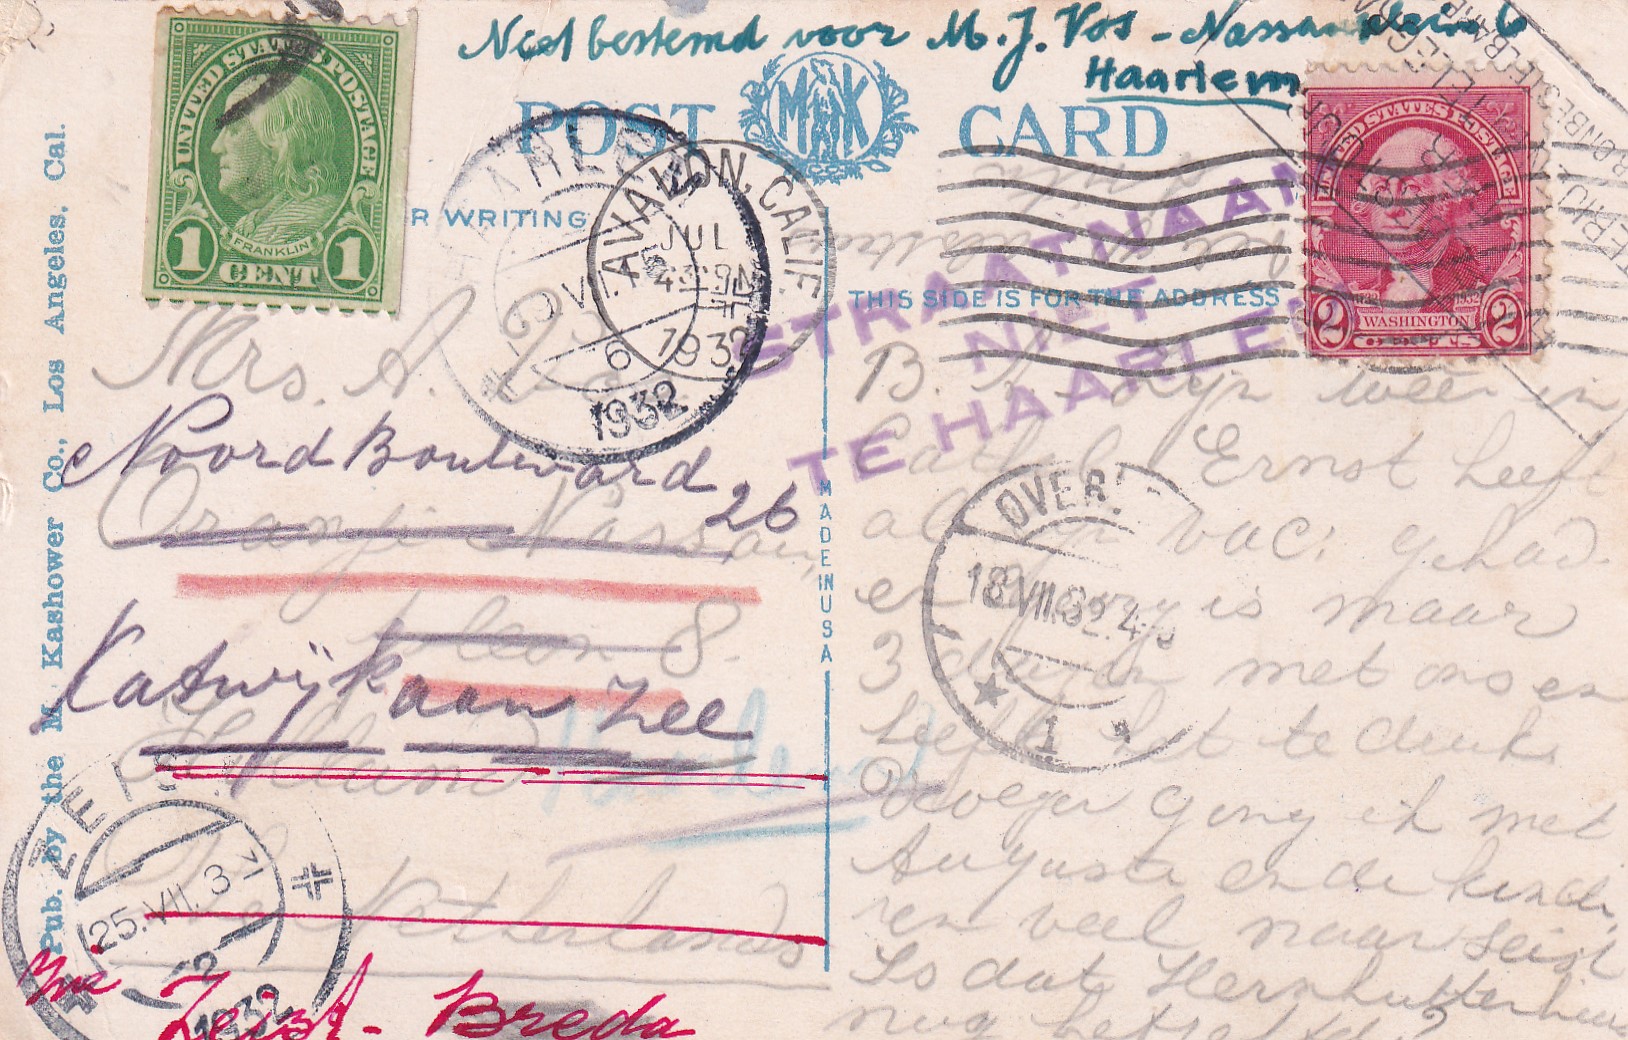 Niet bestemd voor M. J. Vos - Nassauplein 6
Haarlem
UNITED STATES POSTAGE
FRANKLIN
1 CENT 1
POST CARD
MK
R WRITING
THIS SIDE IS FOR THE ADDRESS
AVALON, CALIF
JUL
1932
HAARLEM
1932
STRAATNAAM
NIET
TE HAARLEM
UNITED STATES POSTAGE
1732 1932
WASHINGTON
2 CENTS 2
Mrs. A. Vos
Noord Boulevard
26
Oranje Nassau
plein 8.
Katwijk aan Zee
Holland
The Netherlands
Zeist - Breda
ZEIST
25.VII.32
1932
Pub. by the M. Kashower Co., Los Angeles, Cal.
MADE IN USA
OVER
18.VII.32.4
1
B. zijn weer in
Ernst heeft
al zijn vac: gehad
en is maar
3 dagen met ons en
heeft het te druk.
Vroeger ging ik met
Augusta en de kinde
ren veel naar Zeist
Is dat Hernhutterhuis
nog